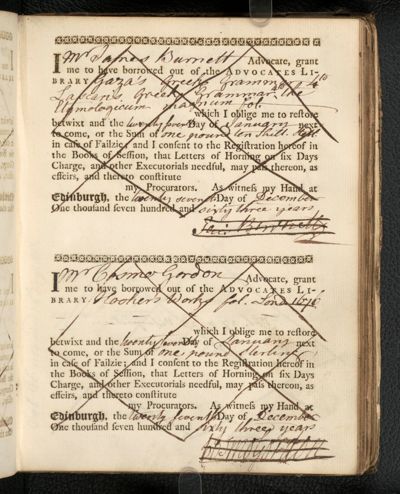 I Mr James Burnett Advocate, grant
me to have borrowed out of the ADVOCATES LI-
BRARY Gaza's Greek Grammar
Lascaris Greek Grammar
Etymologicum magnum fol.
which I oblige me to restore
betwixt and the twenty seventh Day of January next
to come, or the Sum of one pound ten shill. Ster
in case of Failzie; and I consent to the Registration hereof in
the Books of Session, that Letters of Horning on six Days
Charge, and other Executorials needful, may pass thereon, as
effeirs, and thereto constitute
my Procurators. As witness my Hand at
Edinburgh, the twenty seventh Day of December
One thousand seven hundred and sixty three years
I Mr Cosmo Gordon Advocate, grant
me to have borrowed out of the ADVOCATES LI-
BRARY Hooker's Works fol. Lond
which I oblige me to restore
betwixt and the twenty seventh Day of January next
to come, or the Sum of one pound sterling
in case of Failzie; and I consent to the Registration hereof in
the Books of Session, that Letters of Horning on six Days
Charge, and other Executorials needful, may pass thereon, as
effeirs, and thereto constitute
my Procurators. As witness my Hand at
Edinburgh, the twenty seventh Day of December
One thousand seven hundred and sixty three years